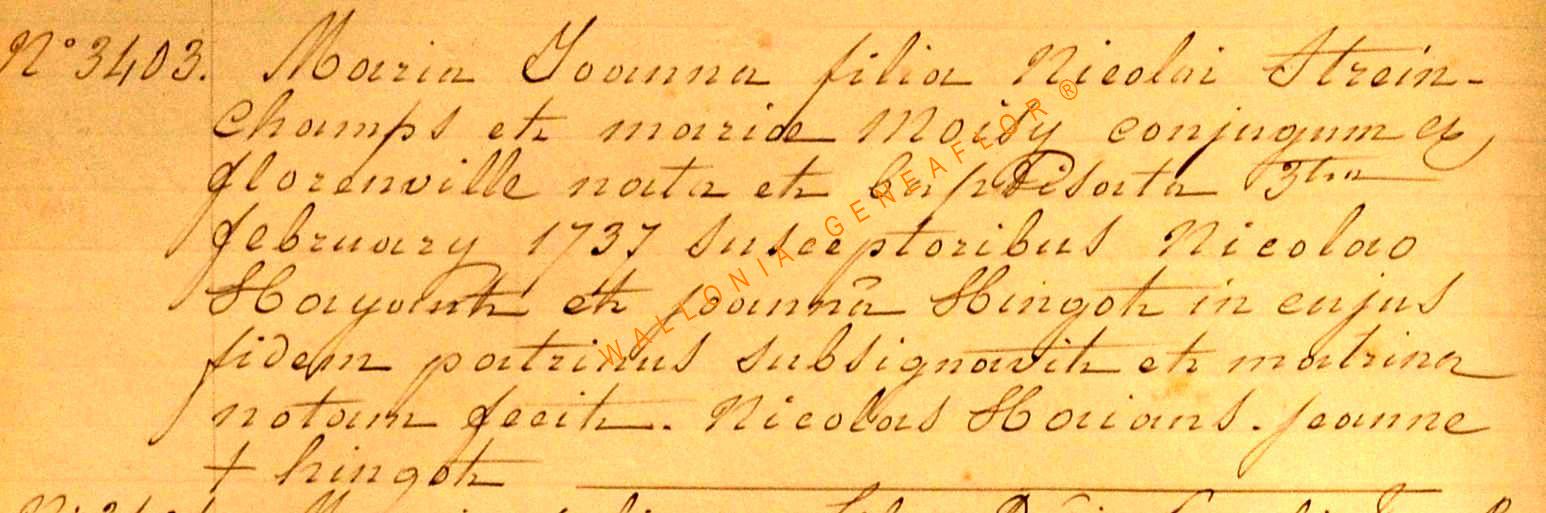 N° 3403. Maria Joanna filia Nicolai Strein-
champs et mariæ Moisy conjugum ex
florenville nata et baptisata 3tia
february 1737 susceptoribus Nicolao
Hayant et joannâ Hingot in cujus
fidem patrinus subsignavit et matrina
notam fecit. Nicolas Haians. jeanne
+ hingot
WALLONIA-GENEAFLOR ®